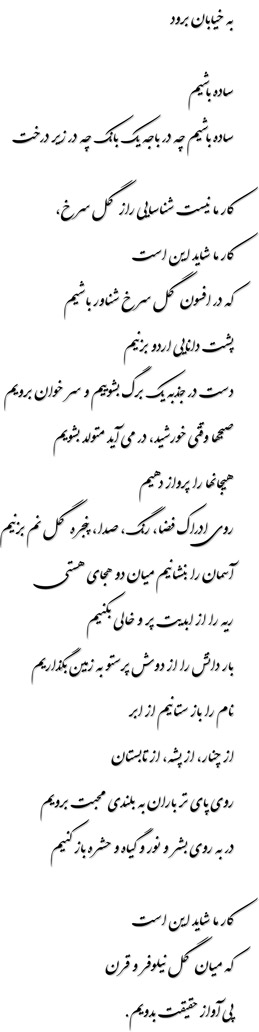 به خیابان برود
ساده باشیم
ساده باشیم چه در باجه یک بانک چه در زیر درخت
کار ما نیست شناسایی راز گل سرخ،
کار ما شاید این است
که در افسون گل سرخ شناور باشیم
پشت دانایی اردو بزنیم
دست در جذبه یک برگ بشوییم و سر خوان برویم
صبحها وقتی خورشید، در می آید متولد بشویم
هیجانها را پرواز دهیم
روی ادراک فضا، رنگ، صدا، پنجره گل نم بزنیم
آسمان را بنشانیم میان دو هجای هستی
ریه را از ابدیت پر و خالی بکنیم
بار دانش را از دوش پرستو به زمین بگذاریم
نام را باز ستانیم از ابر
از چنار، از پشه، از تابستان
روی پای تر باران به بلندی محبت برویم
در به روی بشر و نور و گیاه و حشره باز کنیم
کار ما شاید این است
که میان گل نیلوفر و قرن
پی آواز حقیقت بدویم.